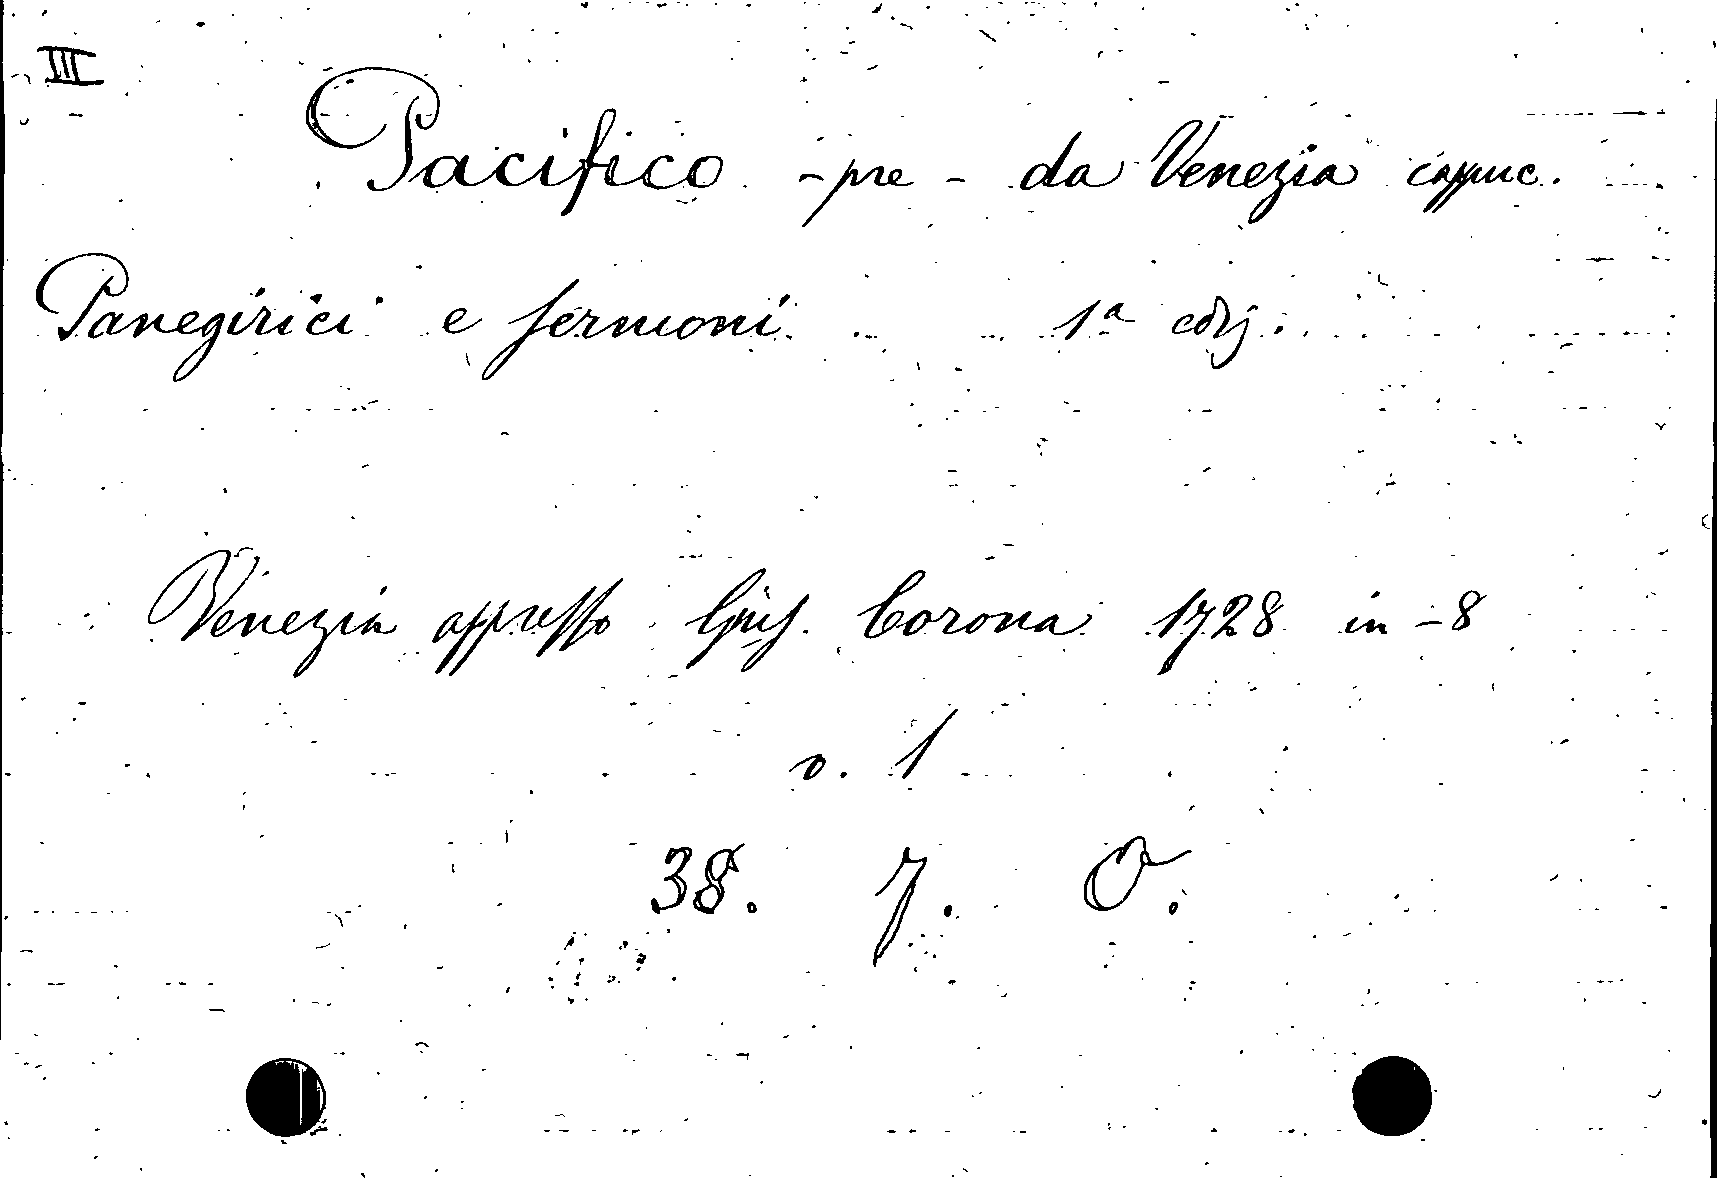 III
Pacifico - pre - da Venezia cappuc.
Panegirici e sermoni 1ª ediz.
Venezia appresso Gius. Corona 1728 in-8
v. 1
38. 7. O.